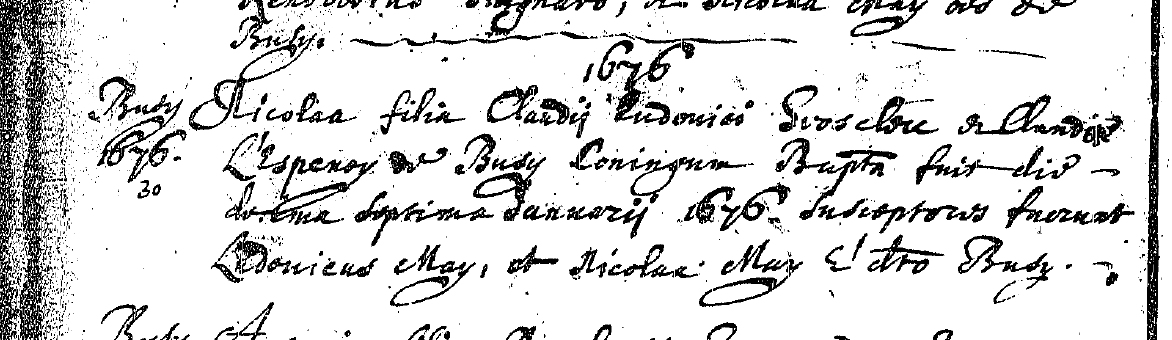 Nicolaa May
Busy.
1676
Busy Nicolaa filia Claudij Ludovici Groscler & Claudiæ
1676. L'Espenoy de Busy Coniugum Bapta fuit die
30
decima septima Januarij 1676. Susceptores fuerunt
Ludovicus May, et Nicolaa May é dto Busy.
Busy